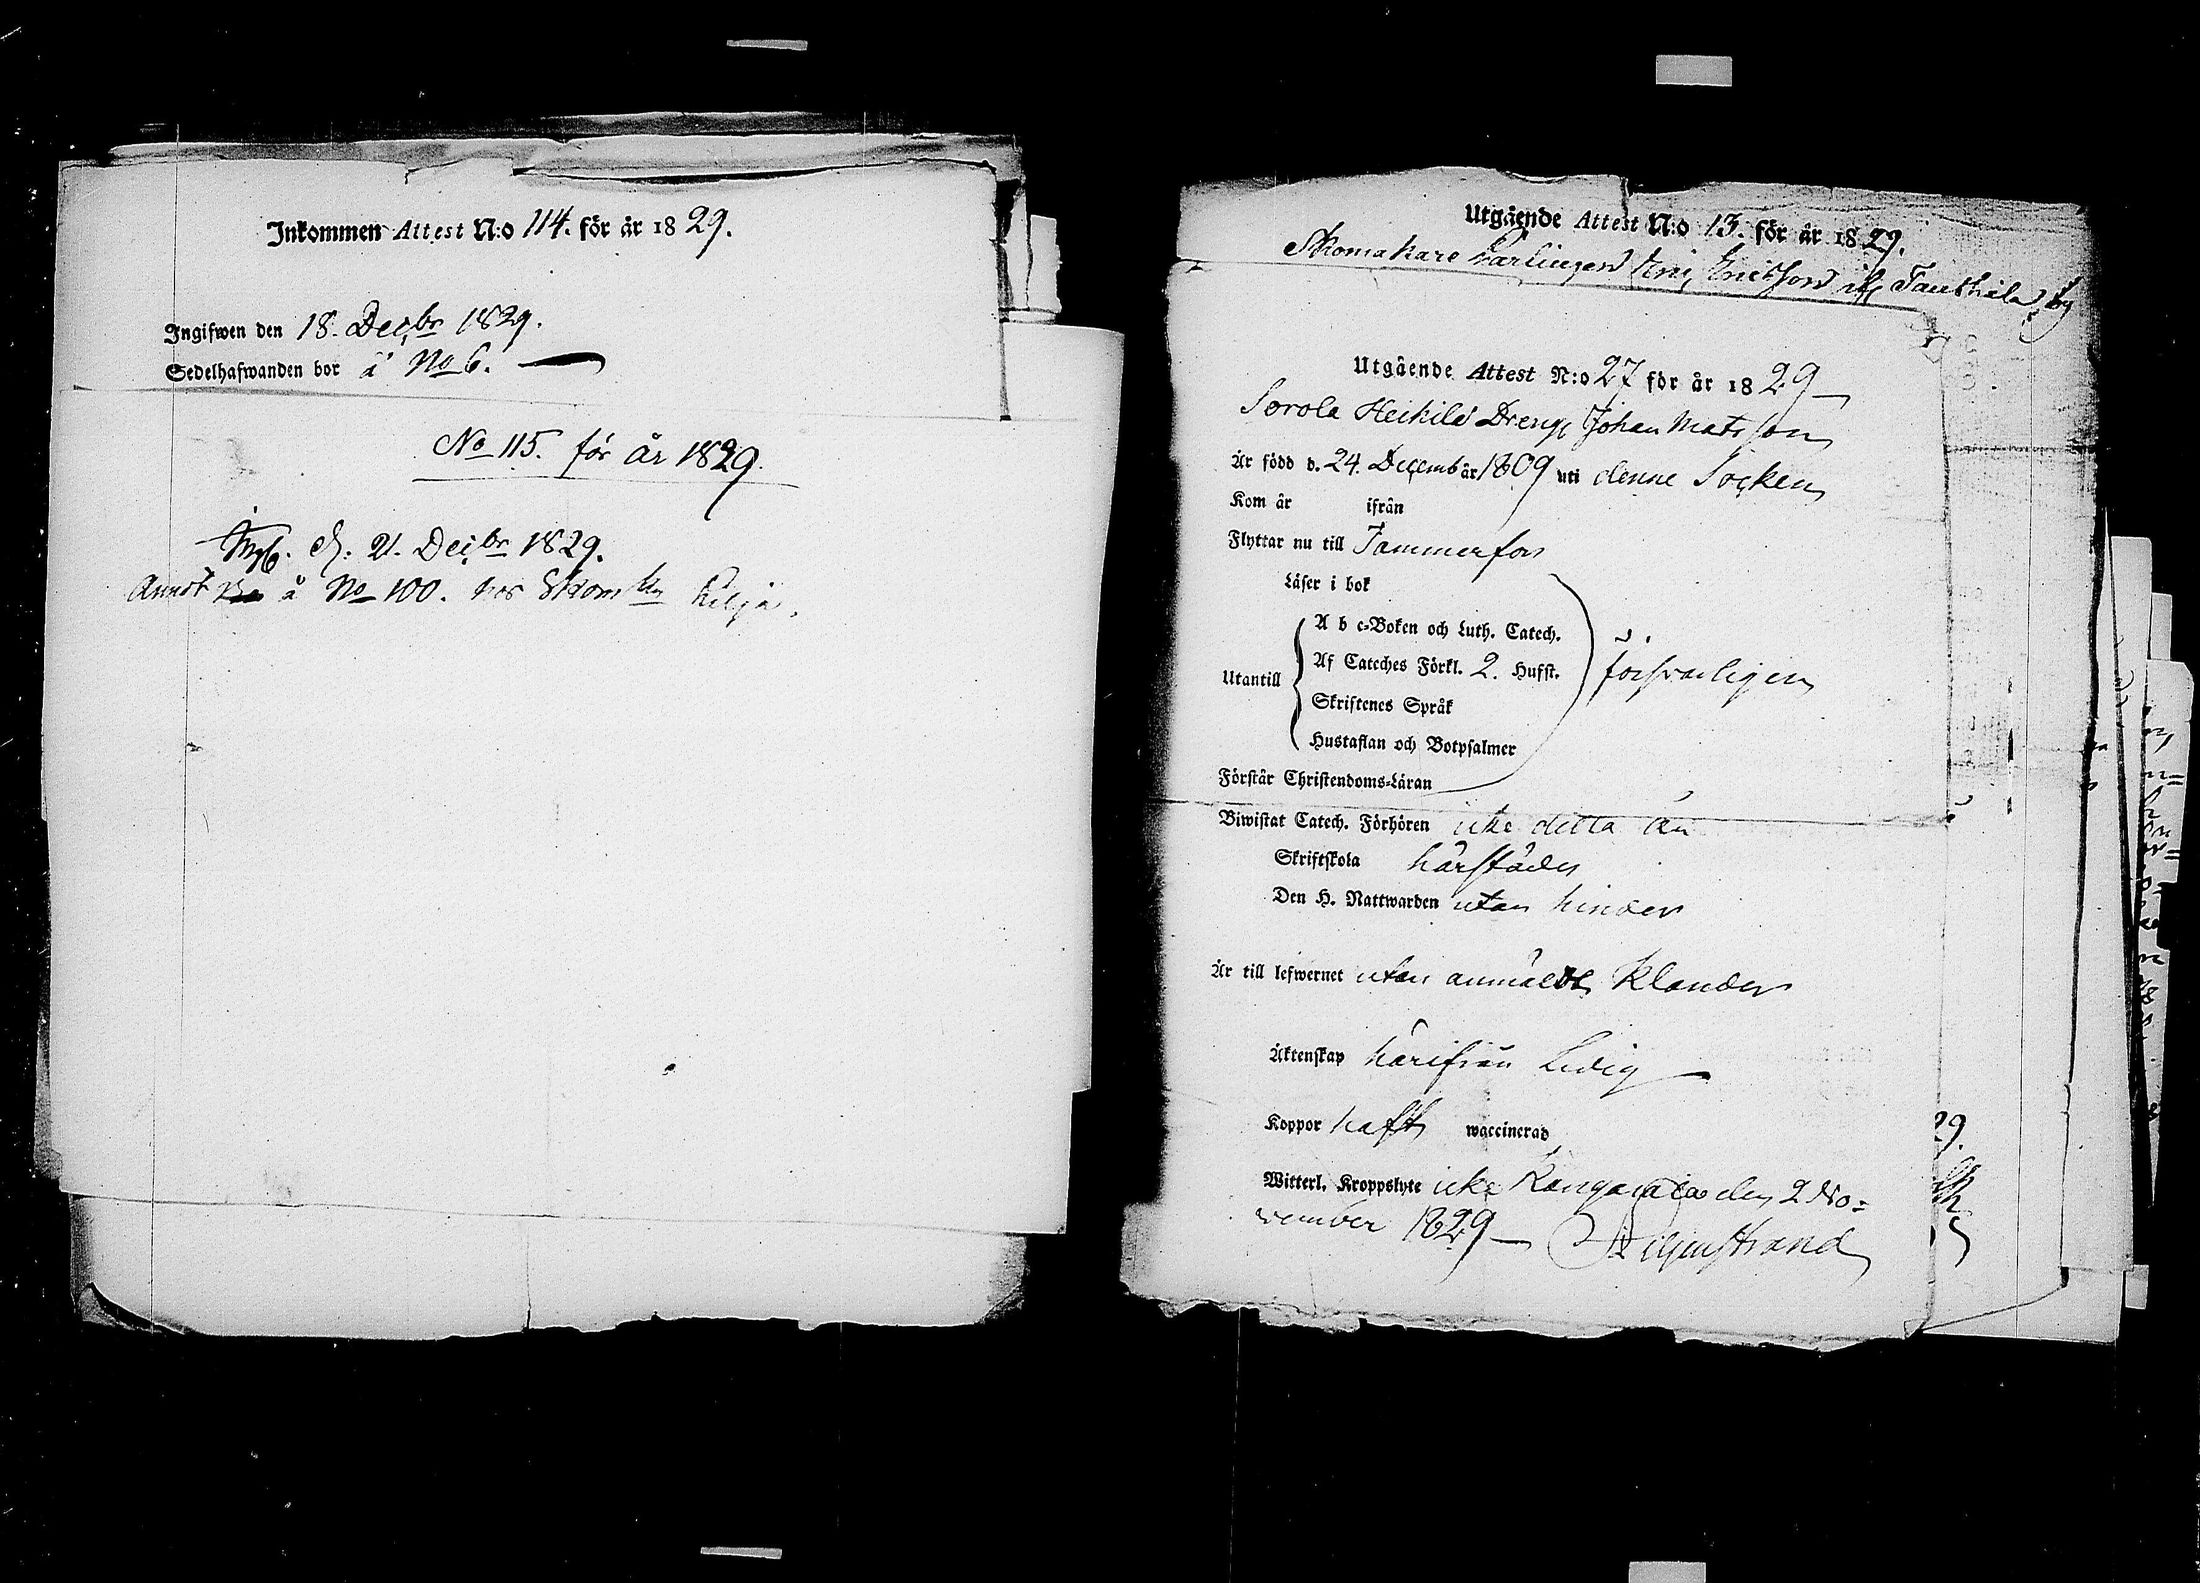 Inkommen Attest N:o 114. för år 1829.
Ingifwen den 18. Decbr 1829.
Sedelhafwanden bor å No 6.
No 115. för år 1829.
Ingb. d. 21. Decbr 1829.
å No 100. hos Skom Lilja.
Utgående Attest N:o 13. för år 1829.
Skomakare Lärlingen Eric Ericsson by
Utgående Attest N:o 27 för år 1829
Sorola Heikilä Dreng Johan Matsson
Är född d. 24. Decemb år 1809 uti denne Socken
Kom år ifrån
Flyttar nu till Tammerfors
Läser i bok
A b c-Boken och Luth. Catech.
Utantill Af Cateches Förkl. 2. Hufst. försvarligen
Skriftenes Språk
Hustaflan och Botpsalmer
Förstår Christendoms-Läran
Biwistat Catech. Förhören icke detta år
Skriftskola härstädes
Den H. Nattwarden utan hinder
Är till lefwernet utan anmäldt klander
Äktenskap härifrån Ledig
Koppor haft waccinerad
29.
Witterl. Kroppslyte icke Kangasala den 2 No=
vember 1829